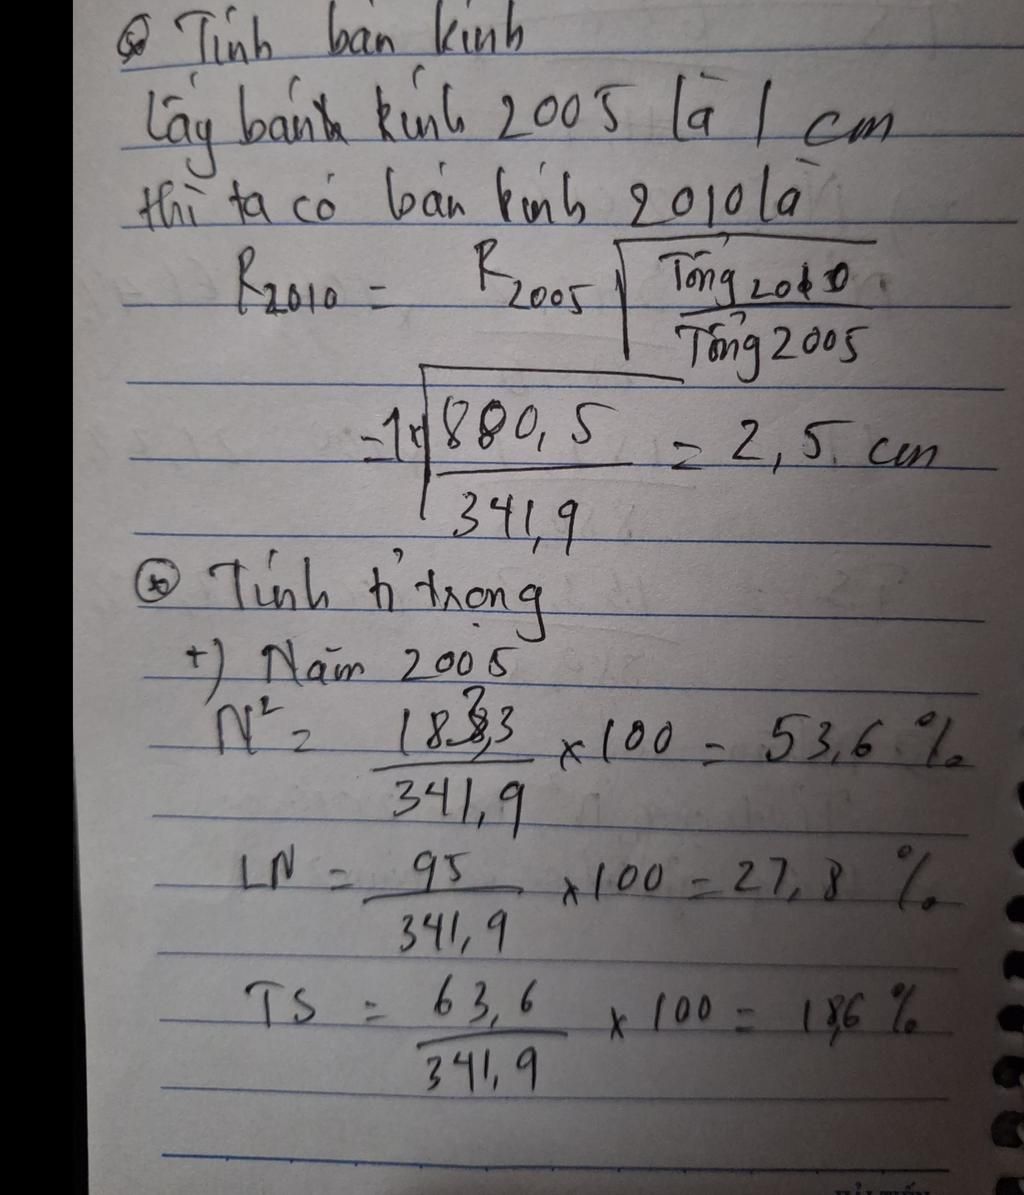 ⊛ Tính bán kính
Lấy bánk kính 2005 là 1 cm
thì ta có bán kính 2010 là
R2010 = R2005 √(Tổng 2010 / Tổng 2005)
= 1x √(880,5 / 341,9) = 2,5 cm
⊛ Tính tỉ trọng
+) Năm 2005
N² = 183,3 / 341,9 x 100 = 53,6 %
LN = 95 / 341,9 x 100 = 27,8 %
TS = 63,6 / 341,9 x 100 = 18,6 %